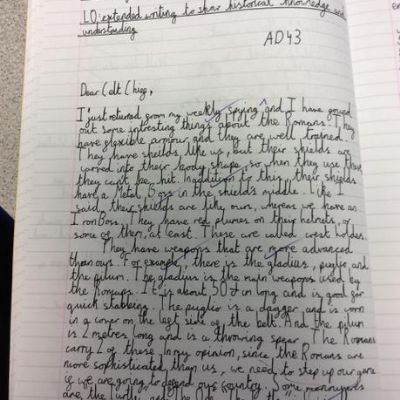 LO: extended writing to show historical knowledge and
understanding
AD43
Dear Celt Chief,
I just returned from my weekly spying and I have found
out some intresting things about the Romans. They
have flexible armour and they are well trained.
They have sheilds like us, but their shields are
curved into their body shape, so when they use them
they can't be hit. In addition to this, their shields
have a Metal Boss in the shield's middle. Like I
said, their shields are like, whereas we have an
Iron Boss. They have red plumes on their helmets, or
some of them, at least. These are called crest holder.
They have weapons that are more advanced
than ours. For example, there is the gladius, pugio and
the pilum. The gladius is the main weapons used by
the Romans. It is about 50 in long and is good for
quick stabbing. The pugio is a dagger and is worn
in a cover on the left side of the belt. And the pilum
is 2 metres long and is a throwing spear. The Romans
carry 2 of these. In my opinion, since the Romans are
more sophisticated than us, we need to step up our game
if we are going to defend our country. Some
are the turtle and the